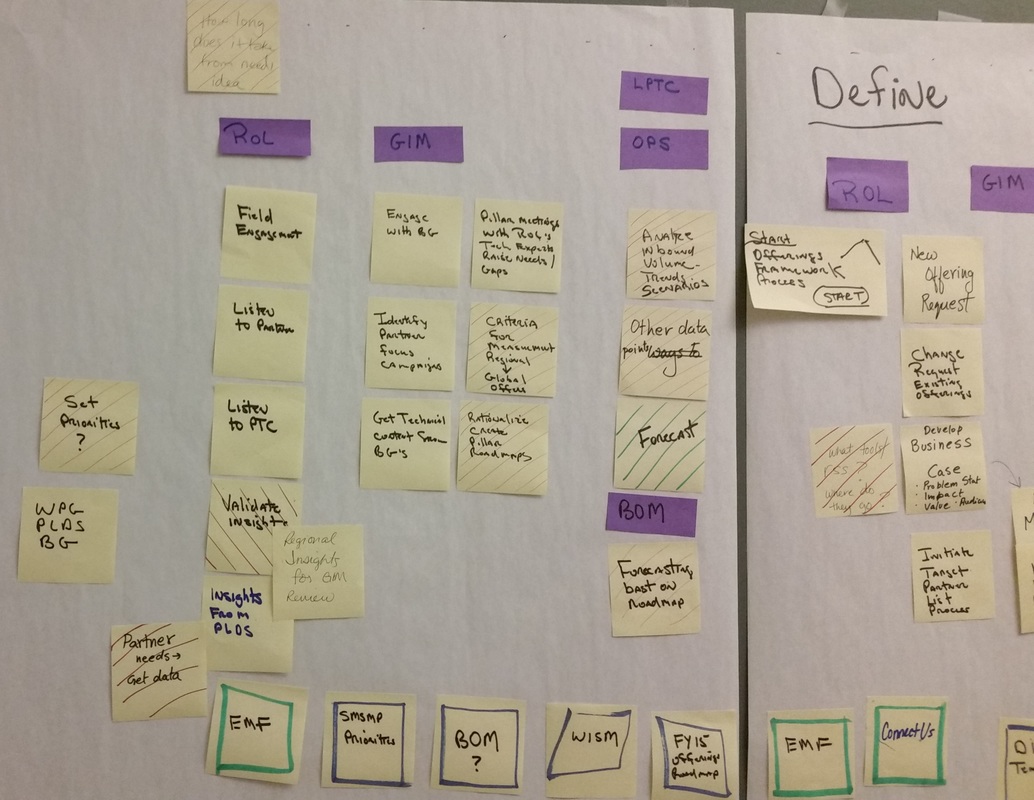 How long
does it take
from need/
idea
ROL
GIM
LPTC
OPS
Field
Engagement
Listen
to Partner
Listen
to PTC
Validate
Insight
Regional
Insights
for GIM
Review
Insights
From
PLDS
Set
Priorities
?
WPG
PLDS
BG
Partner
needs→
Get data
Engage
with BG
Identify
Partner
focus
campaigns
Get Technical
content from
BG's
Pillar meetings
with ROL's
Tech Experts
Raise Needs/
Gaps
Criteria
for
Measurement
Regional
↓
Global
Offers
Rationalize
Create
Pillar
Roadmaps
Analyze
Inbound
Volume-
Trends
Scenarios
Other data
points/ways to
Forecast
BOM
Forecasting
bast on
Roadmap
EMF
SMSMP
Priorities
BOM
?
WISM
FY15
Offerings
Roadmap
Define
ROL
GIM
Start
Offerings
Framework
Process
START
New
Offering
Request
Change
Request
Existing
Offerings
what tools/
where do
they go?
Develop
Business
Case
· Problem Stat
· Impact
· Value
Initiate
Target
Partner
List
Process
EMF
ConnectUs